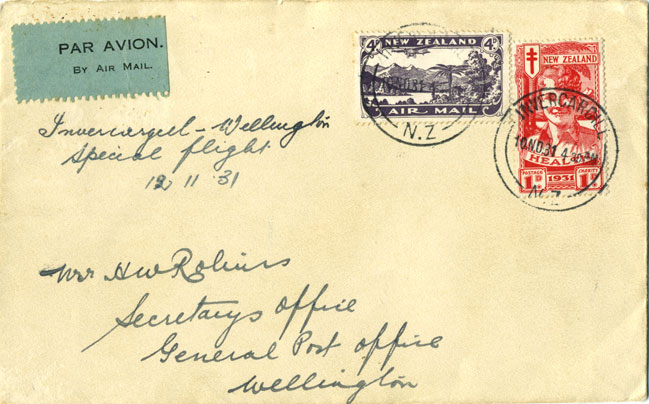 PAR AVION.
BY AIR MAIL.
4d NEW ZEALAND 4d
AIR MAIL
N.Z
NEW ZEALAND
INVERCARGILL
HEALTH
POSTAGE 1931 CHARITY
1D 1D
N.Z
Invercargill - Wellington
special flight
12 11 31
Mr H W Robins
Secretarys Office
General Post Office
Wellington